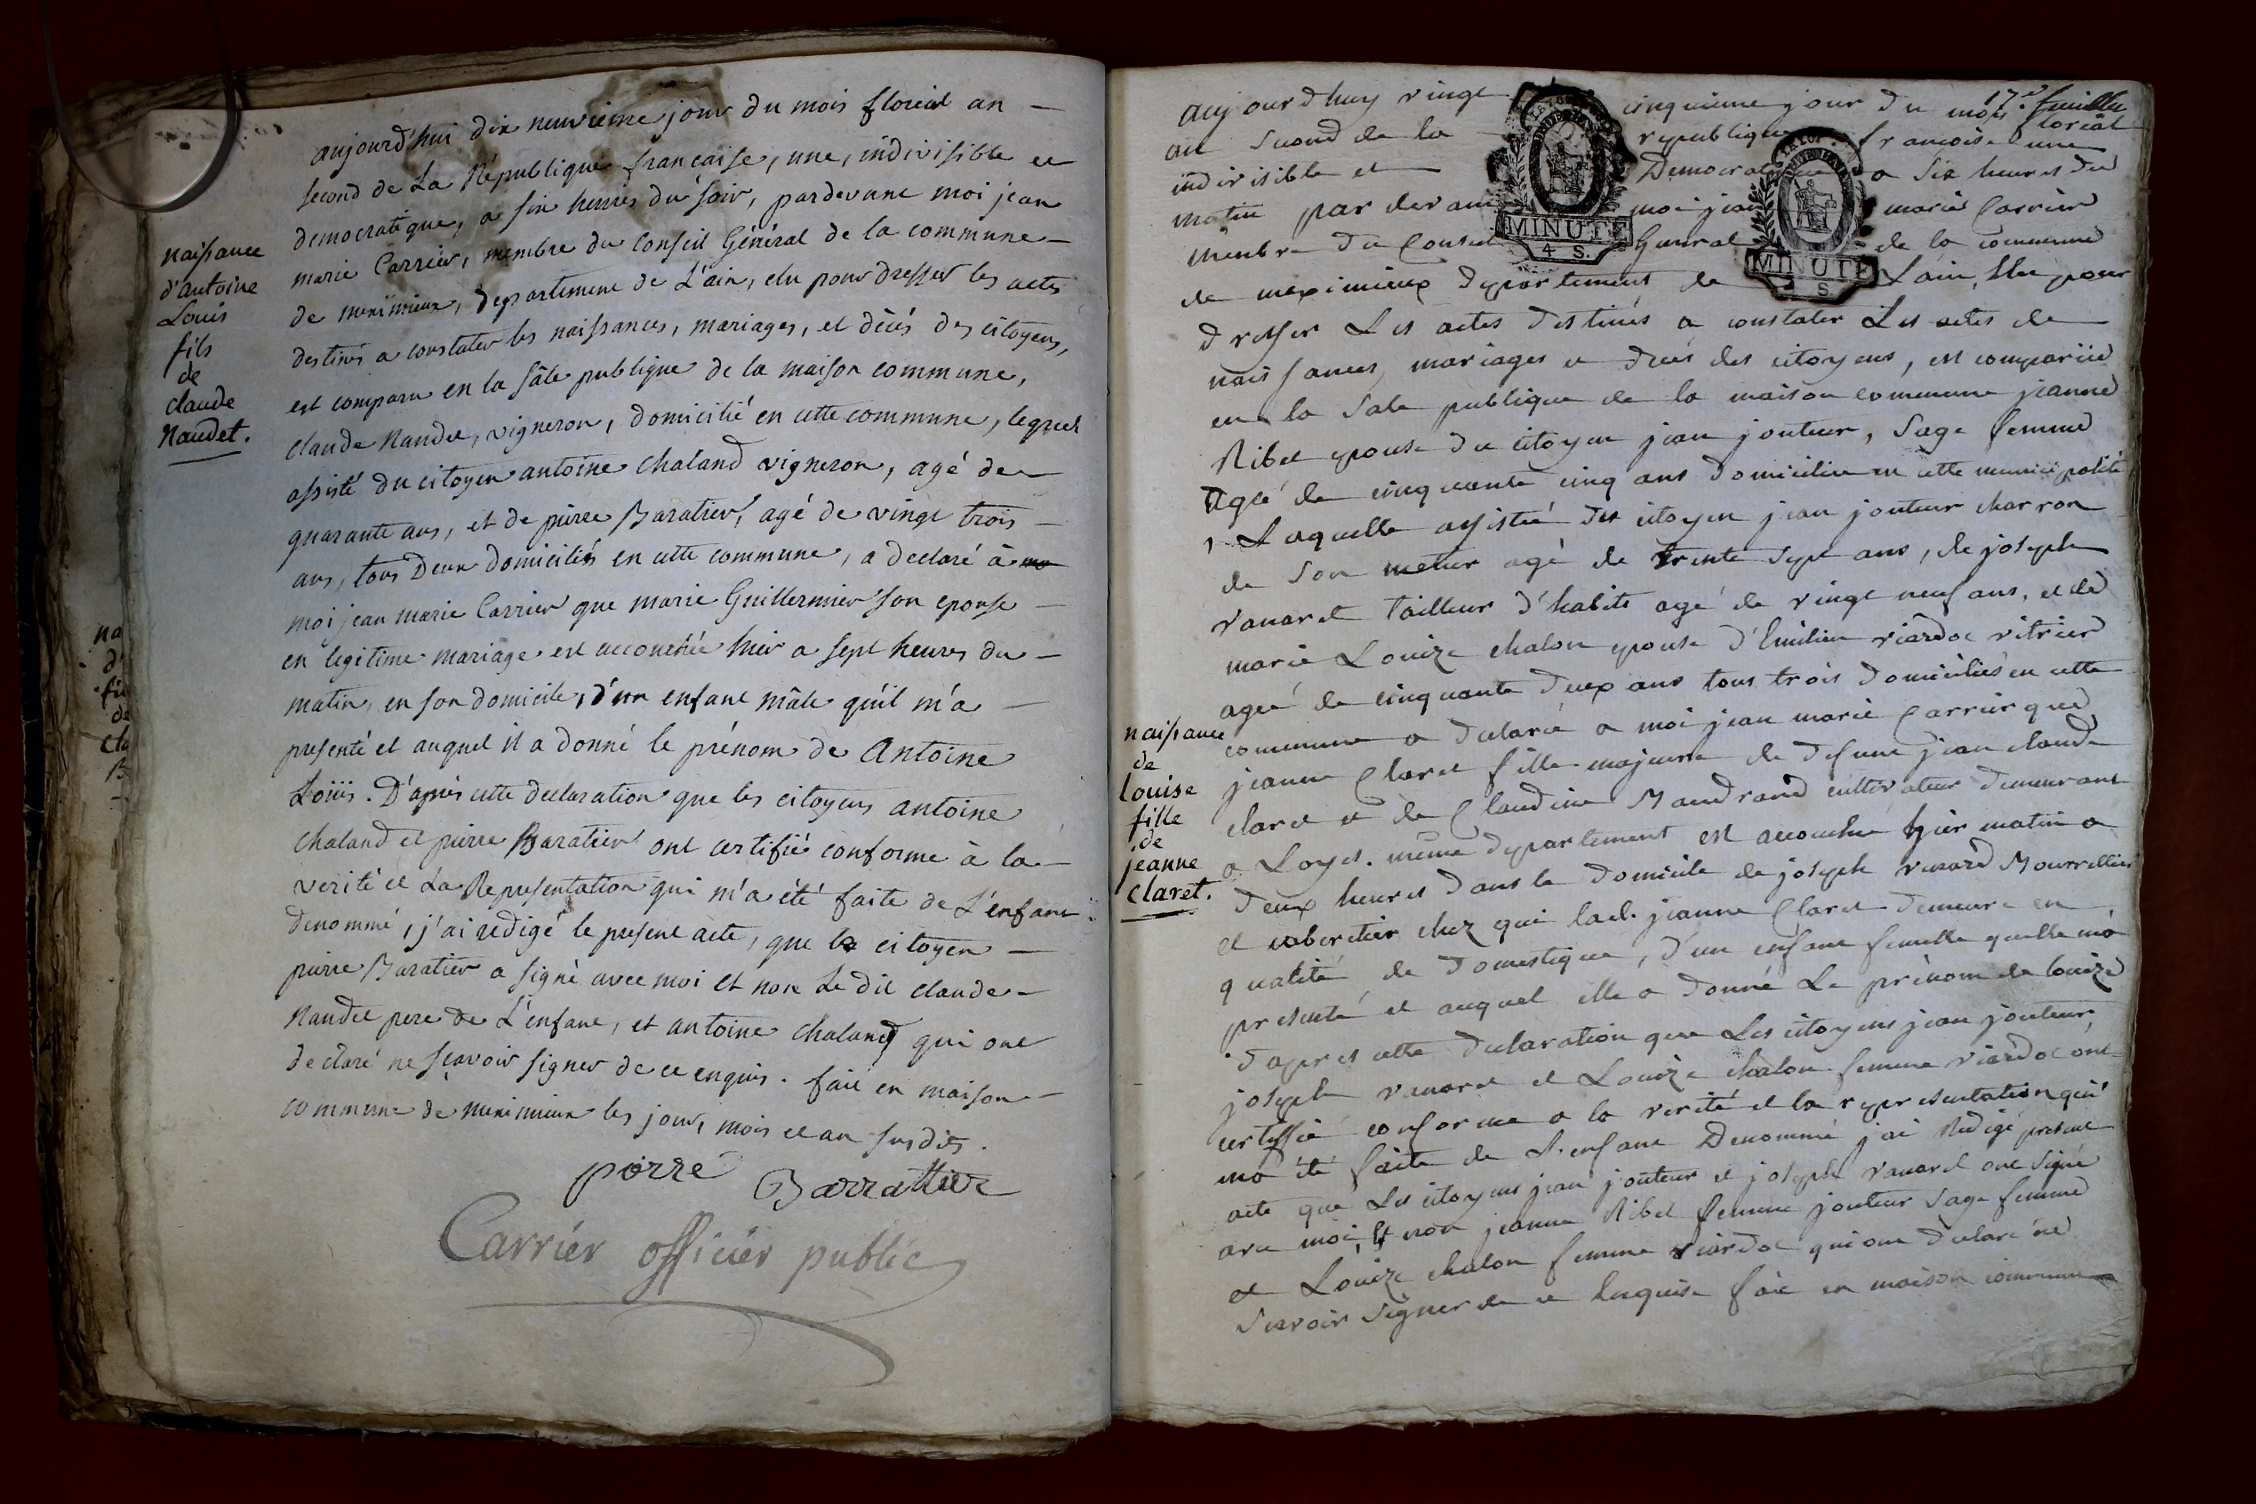 naissance
d'antoine
Louis
fils
de
claude
Naudet.
aujourd'hui dix neuvieme jour du mois floreal an
second de La République française, une, indivisible et
democratique, a six heures du soir, pardevant moi jean
marie Carrier, membre du Conseil Général de la commune
de meximieux, departement de L'ain, elu pour dresser les actes
destinés a constater les naissances, mariages, et décés des citoyens,
est comparu en la sâle publique de la maison commune,
claude Naudet, vigneron, domicilié en cette commune, lequel
assisté du citoyen antoine chaland vigneron, agé de
quarante ans, et de pierre Baratier, agé de vingt trois
ans, tous deux domiciliés en cette commune, a declaré à mo
moi jean marie Carrier que marie Guillermier son epouse
en legitime mariage est accouchée hier a sept heures du
matin, en son domicile, d'un enfant mâle qu'il m'a
presenté et auquel il a donné le prénom de Antoine
Loüis. D'après cette declaration que les citoyens antoine
chaland et pierre Baratier ont certifié conforme à la
verité et La Representation qui m'a été faite de L'enfant
denommé, j'ai rédigé le present acte, que le citoyen
pierre Baratier a signé avec moi et non Le dit claude
Naudet pere de L'enfant, et antoine chaland qui ont
declaré ne sçavoir signer de ce enquis. fait en maison
commune de meximieux les jour, mois et an susdits.
pierre Barrattier
Carrier officier public
17e feuillet
MINUTE
4 S.
MINUTE
S
aujourdhuy vingt cinquieme jour du mois floreal
an second de la republique francoise une
indivisible et Democratique a six heures du
matin par devant moi jean marie Carrier
membre du Conseil General de la commune
de meximieux departement de Lain, Elu pour
dresser Les actes destinés a constater Les actes de
naissances, mariages et deces des citoyens, est comparüe
en la Sale publique de la maison commune jeanne
Ribet epouse du citoyen jean jouteur, Sage femme
agée de cinquante cinq ans domiciliée en cette municipalité
, Laquelle assistée des citoyen jean jouteur charron
de son metier agé de trente sept ans, de joseph
vanaret tailleur d'habits agé de vingt neuf ans, et de
marie Louize chalon epouse d'Emilien viardot vitrier
agée de cinquante deux ans tous trois domiciliés en cette
commune a declaré a moi jean marie Carrier que
naissance
de
louise
fille
de
jeanne
claret.
jeanne Claret fille majeure de defunt jean claude
claret et de Claudine Mandrand cultivateur demeurant
a Loyes. même departement est accouchée hier matin a
deux heures dans le domicile de joseph
et cabaretier chez qui lad. jeanne Claret demeure en
qualité de domestique, d'un enfant femelle quelle m'a
presenté et auquel elle a donné Le prénom de louize
. d'apres cette declaration que Les citoyens jean jouteur,
joseph vanaret et Louize chalon femme viardot ont
certiffié conforme a la verité et la representation qui
ma été faite de L'enfant Denommé j'ai Redigé present
acte que Les citoyens jean jouteur et joseph vanaret ont signé
avec moi, Et non jeanne Ribet femme jouteur sage femme
et Louize chalon femme viardot qui ont declaré ne
scavoir signer de ce Enquise fait en maison commune